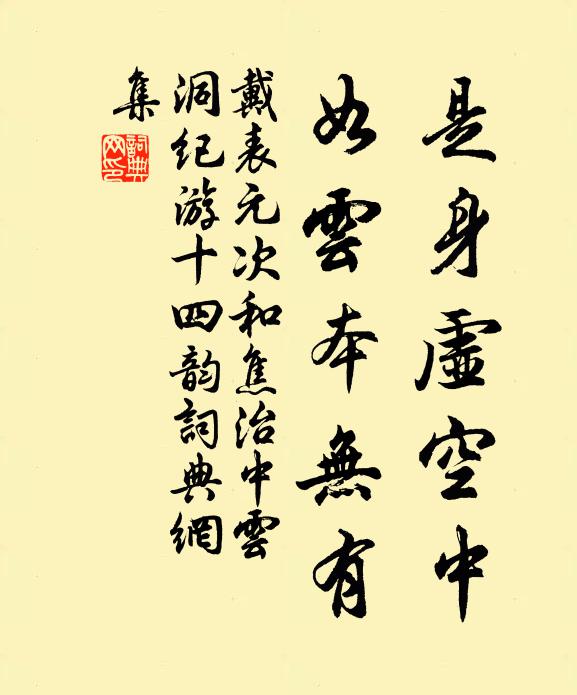 是身虛空中
如雲本無有
戴表元次和焦治中雲
洞紀游十四韵詞典網
集
詞典网印